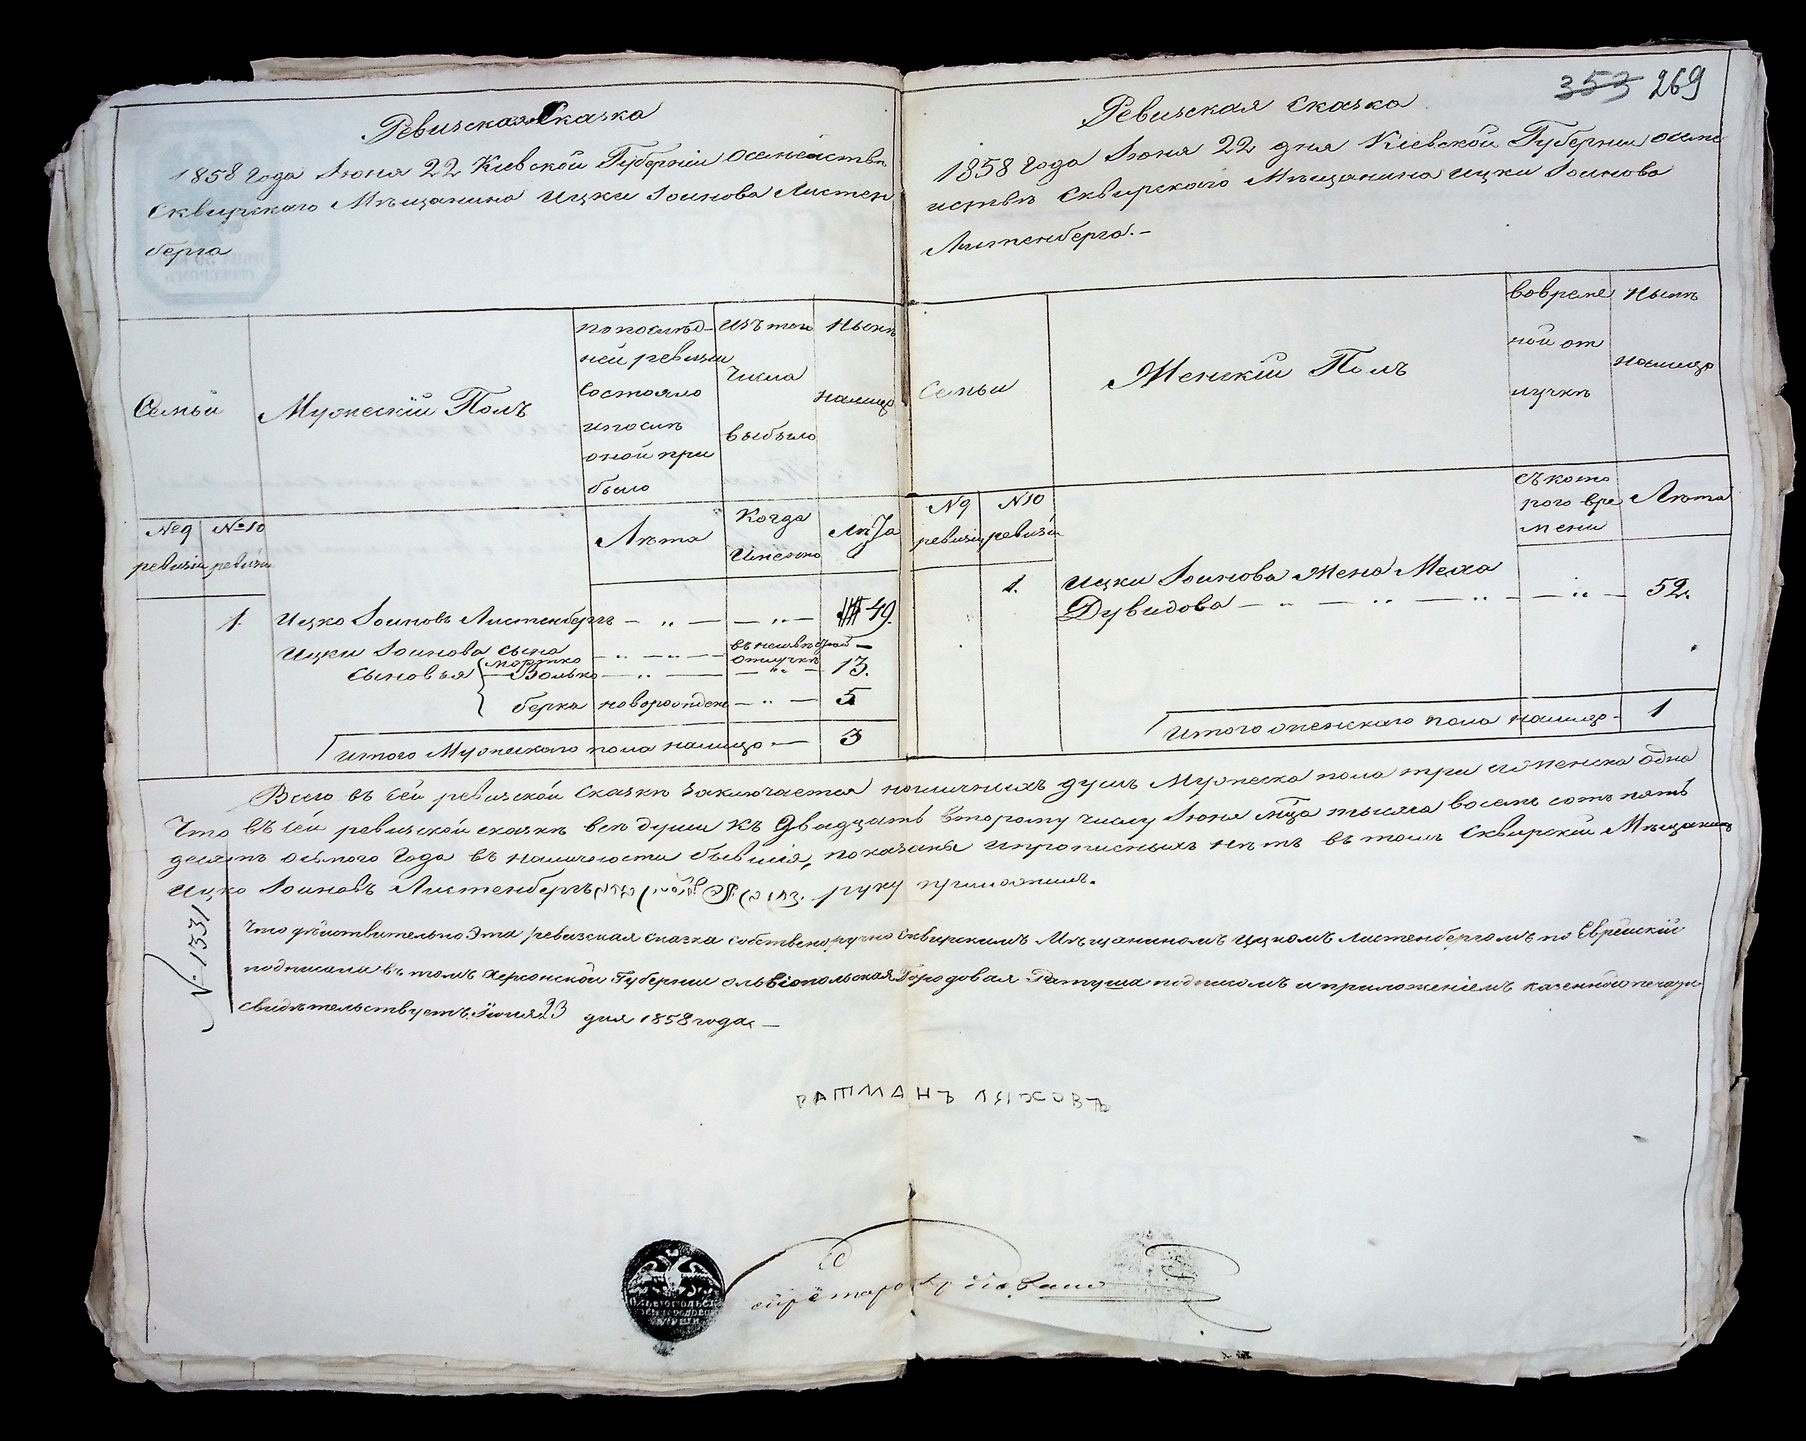 353 269
Ревизская Сказка
1858 года Июня 22 Кіевской Губерніи о семействѣ
Сквирскаго Мѣщанина Ицки Іоинова Листен
берга
Семьи
Мужескій Полъ
попослѣд-
ней ревизіи
состояло
ипослѣ
оной при
было
изъ того
числа
выбыло
Нынѣ
налицо
№ 9 ревизіи
№ 10 ревизіи
Лѣта
Когда
Именно
Лѣта
1. Ицко Іоиновъ Листенбергъ — „ — — „ — 49.
Ицки Іоинова сына
Мортко — „ — въ неизвѣстной отлучкѣ —
сыновья Волько — „ — — „ — 13.
берка новорожден — „ — 5
Итого Мужескаго пола налицо — 3
Ревизская Сказка
1858 года Іюня 22 дня Кіевской Губерніи осеме
иствѣ Сквирскаго Мѣщанина Ицки Іоинова
Листенберга. –
Семьи
Женскій Полъ
вовреме
ной от
лучкѣ
Нынѣ
налицо
N 9 ревизіи
N 10 ревизіи
съ кото
рого вре
мени
Лѣта
1. Ицки Іоинова жена Меха
Дувидова — „ — „ — „ — — „ — 52.
Итого женскаго пола налицо - 1
Всего въ сей ревизской сказкѣ заключается наличныхъ душъ Мужеска пола три и женска одна
Что въ сей ревизской сказкѣ всѣ души къ двадцать второму числу Іюня мца тысяча восемь сотъ пять
десятъ осьмого года въ наличности бывшія, показаны ипрописныхъ нѣтъ въ томъ Сквирскій Мѣщанинъ
Ицко Іоиновъ Листенбергъ руку приложилъ.
№ 1331
Что дѣйствительно Эта ревизская сказка собственоручно Сквирскимъ Мѣщаниномъ Ицкомъ Листенбергомъ по Еврейскій
подписана въ томъ Херсонской Губерніи ольвіопольская Городовая Ратуша подписомъ и приложеніемъ казенной печати
свидѣтельствуетъ. Іюня 23 дня 1858 года. —
РАТМАНЪ ЛЯХОВЪ